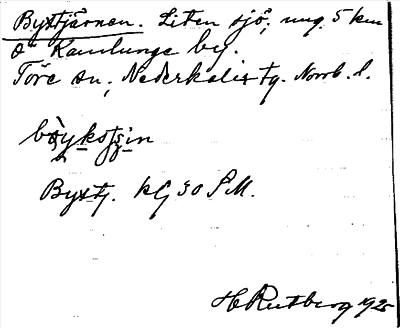 Bystjärnen. Liten sjö, ung. 5 km
Ö Kamlunge by.
Töre sn, Nederkalix tg. Norrb. l.
Bystj. kG 30 SM.
H Rutberg 1925